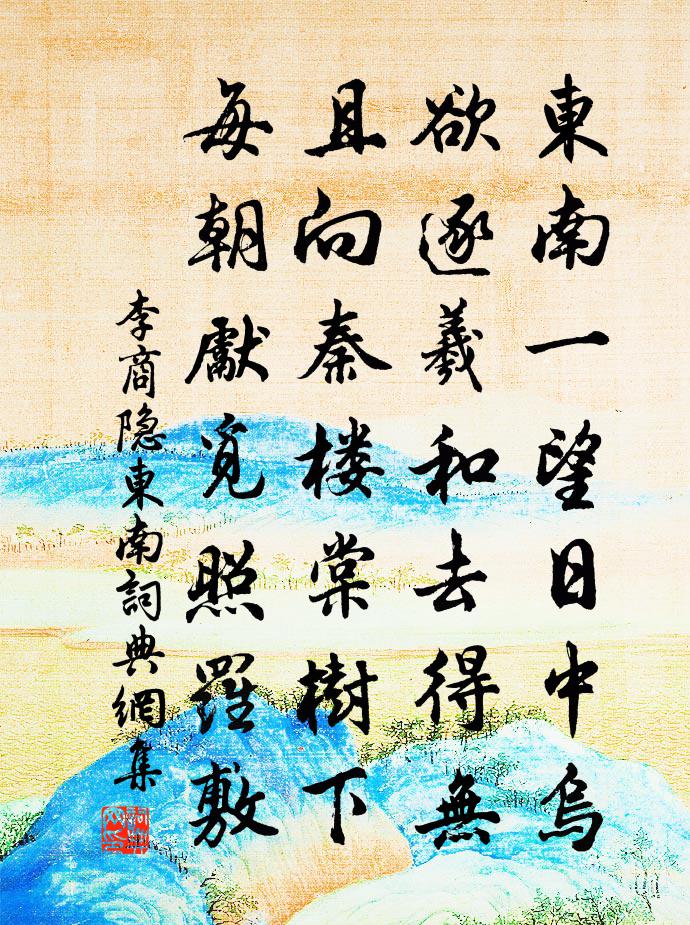 東南一望日中烏
欲逐羲和去得無
且向秦楼棠樹下
每朝獻覓照羅敷
李商隐東南詞典網集